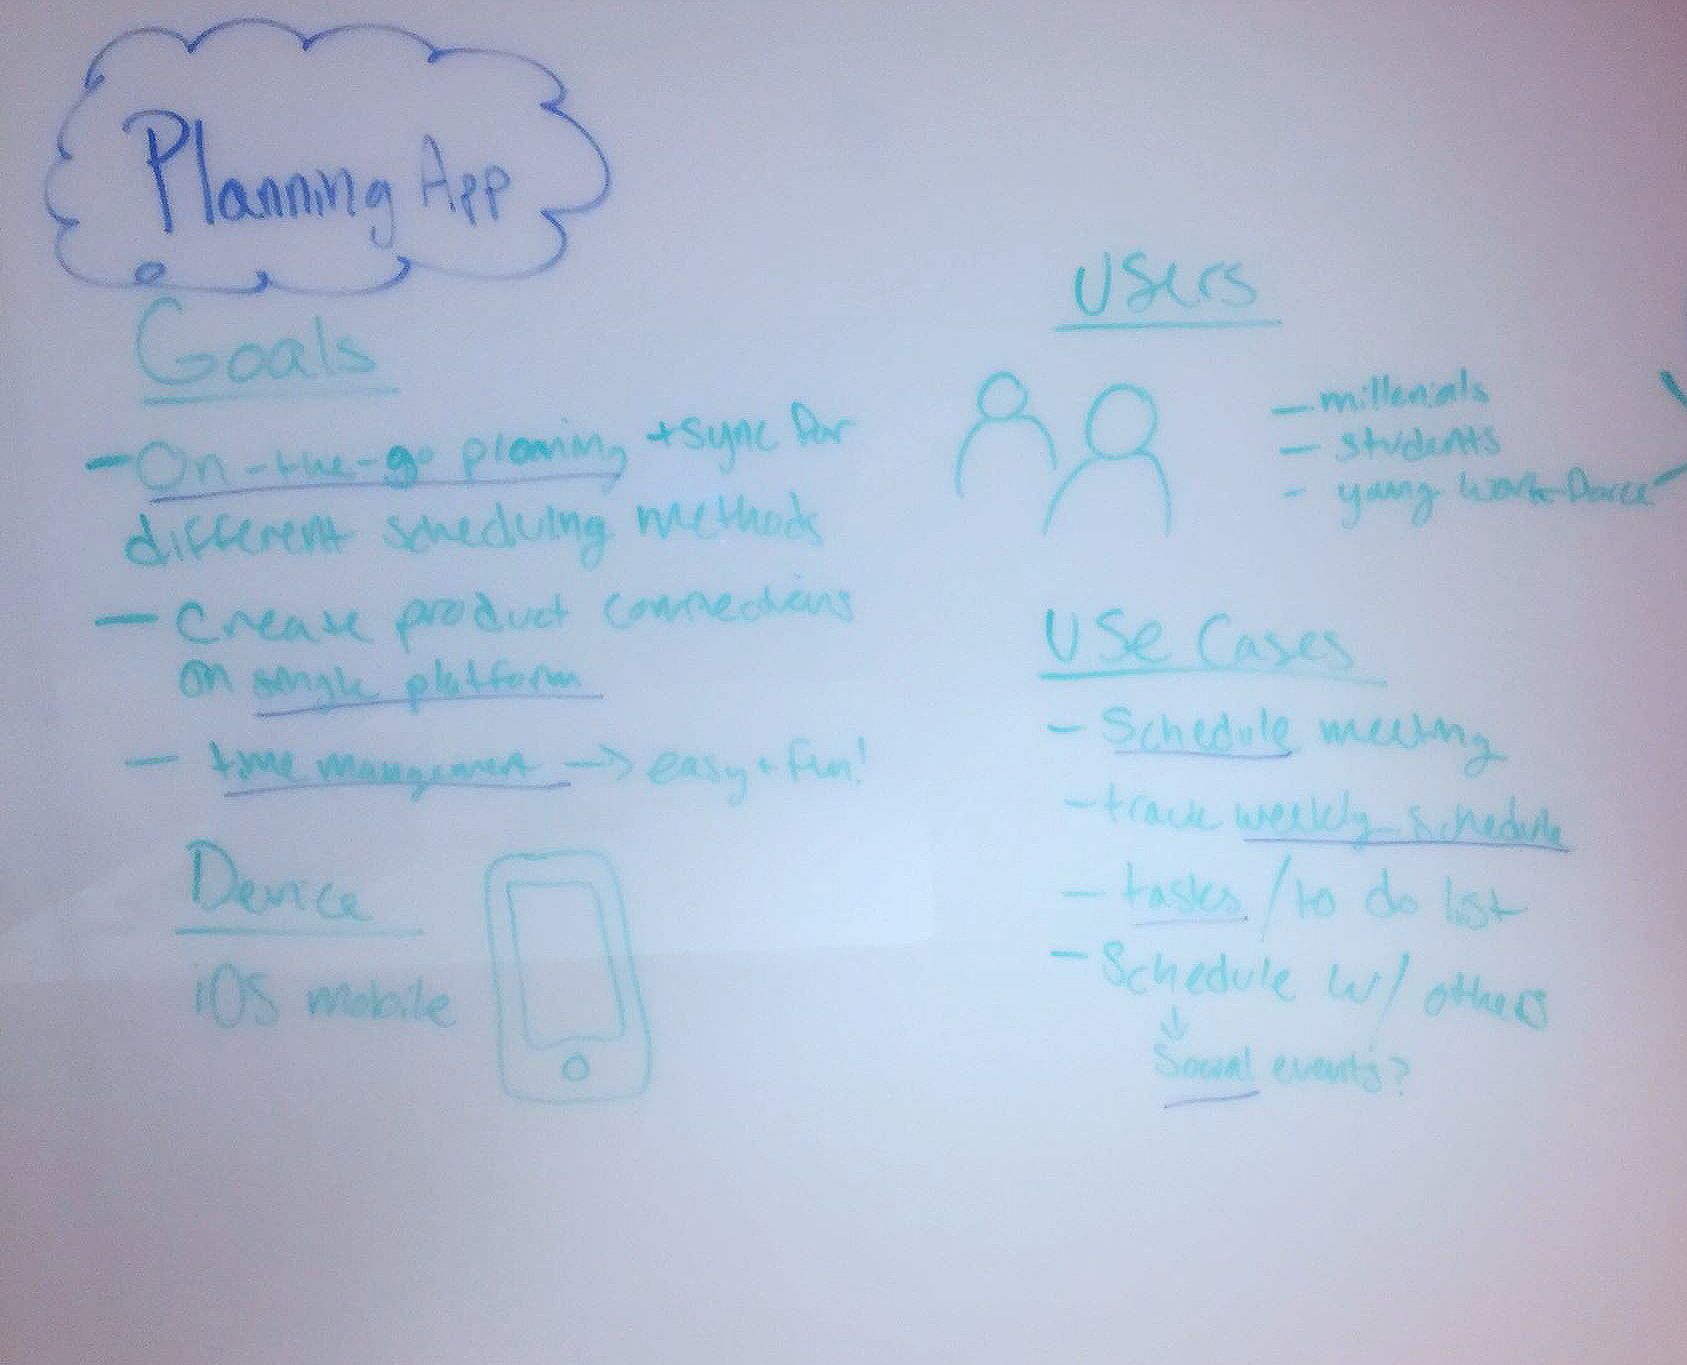 Planning App
Goals
- On-the-go planning + sync for
different scheduling methods
- Create product connections
on single platform
- time management -> easy + fun!
Device
iOS mobile
Users
- millenials
- students
- young workforce
Use Cases
- Schedule meeting
- track weekly schedule
- tasks / to do list
- Schedule w/ others
↓
Social events?